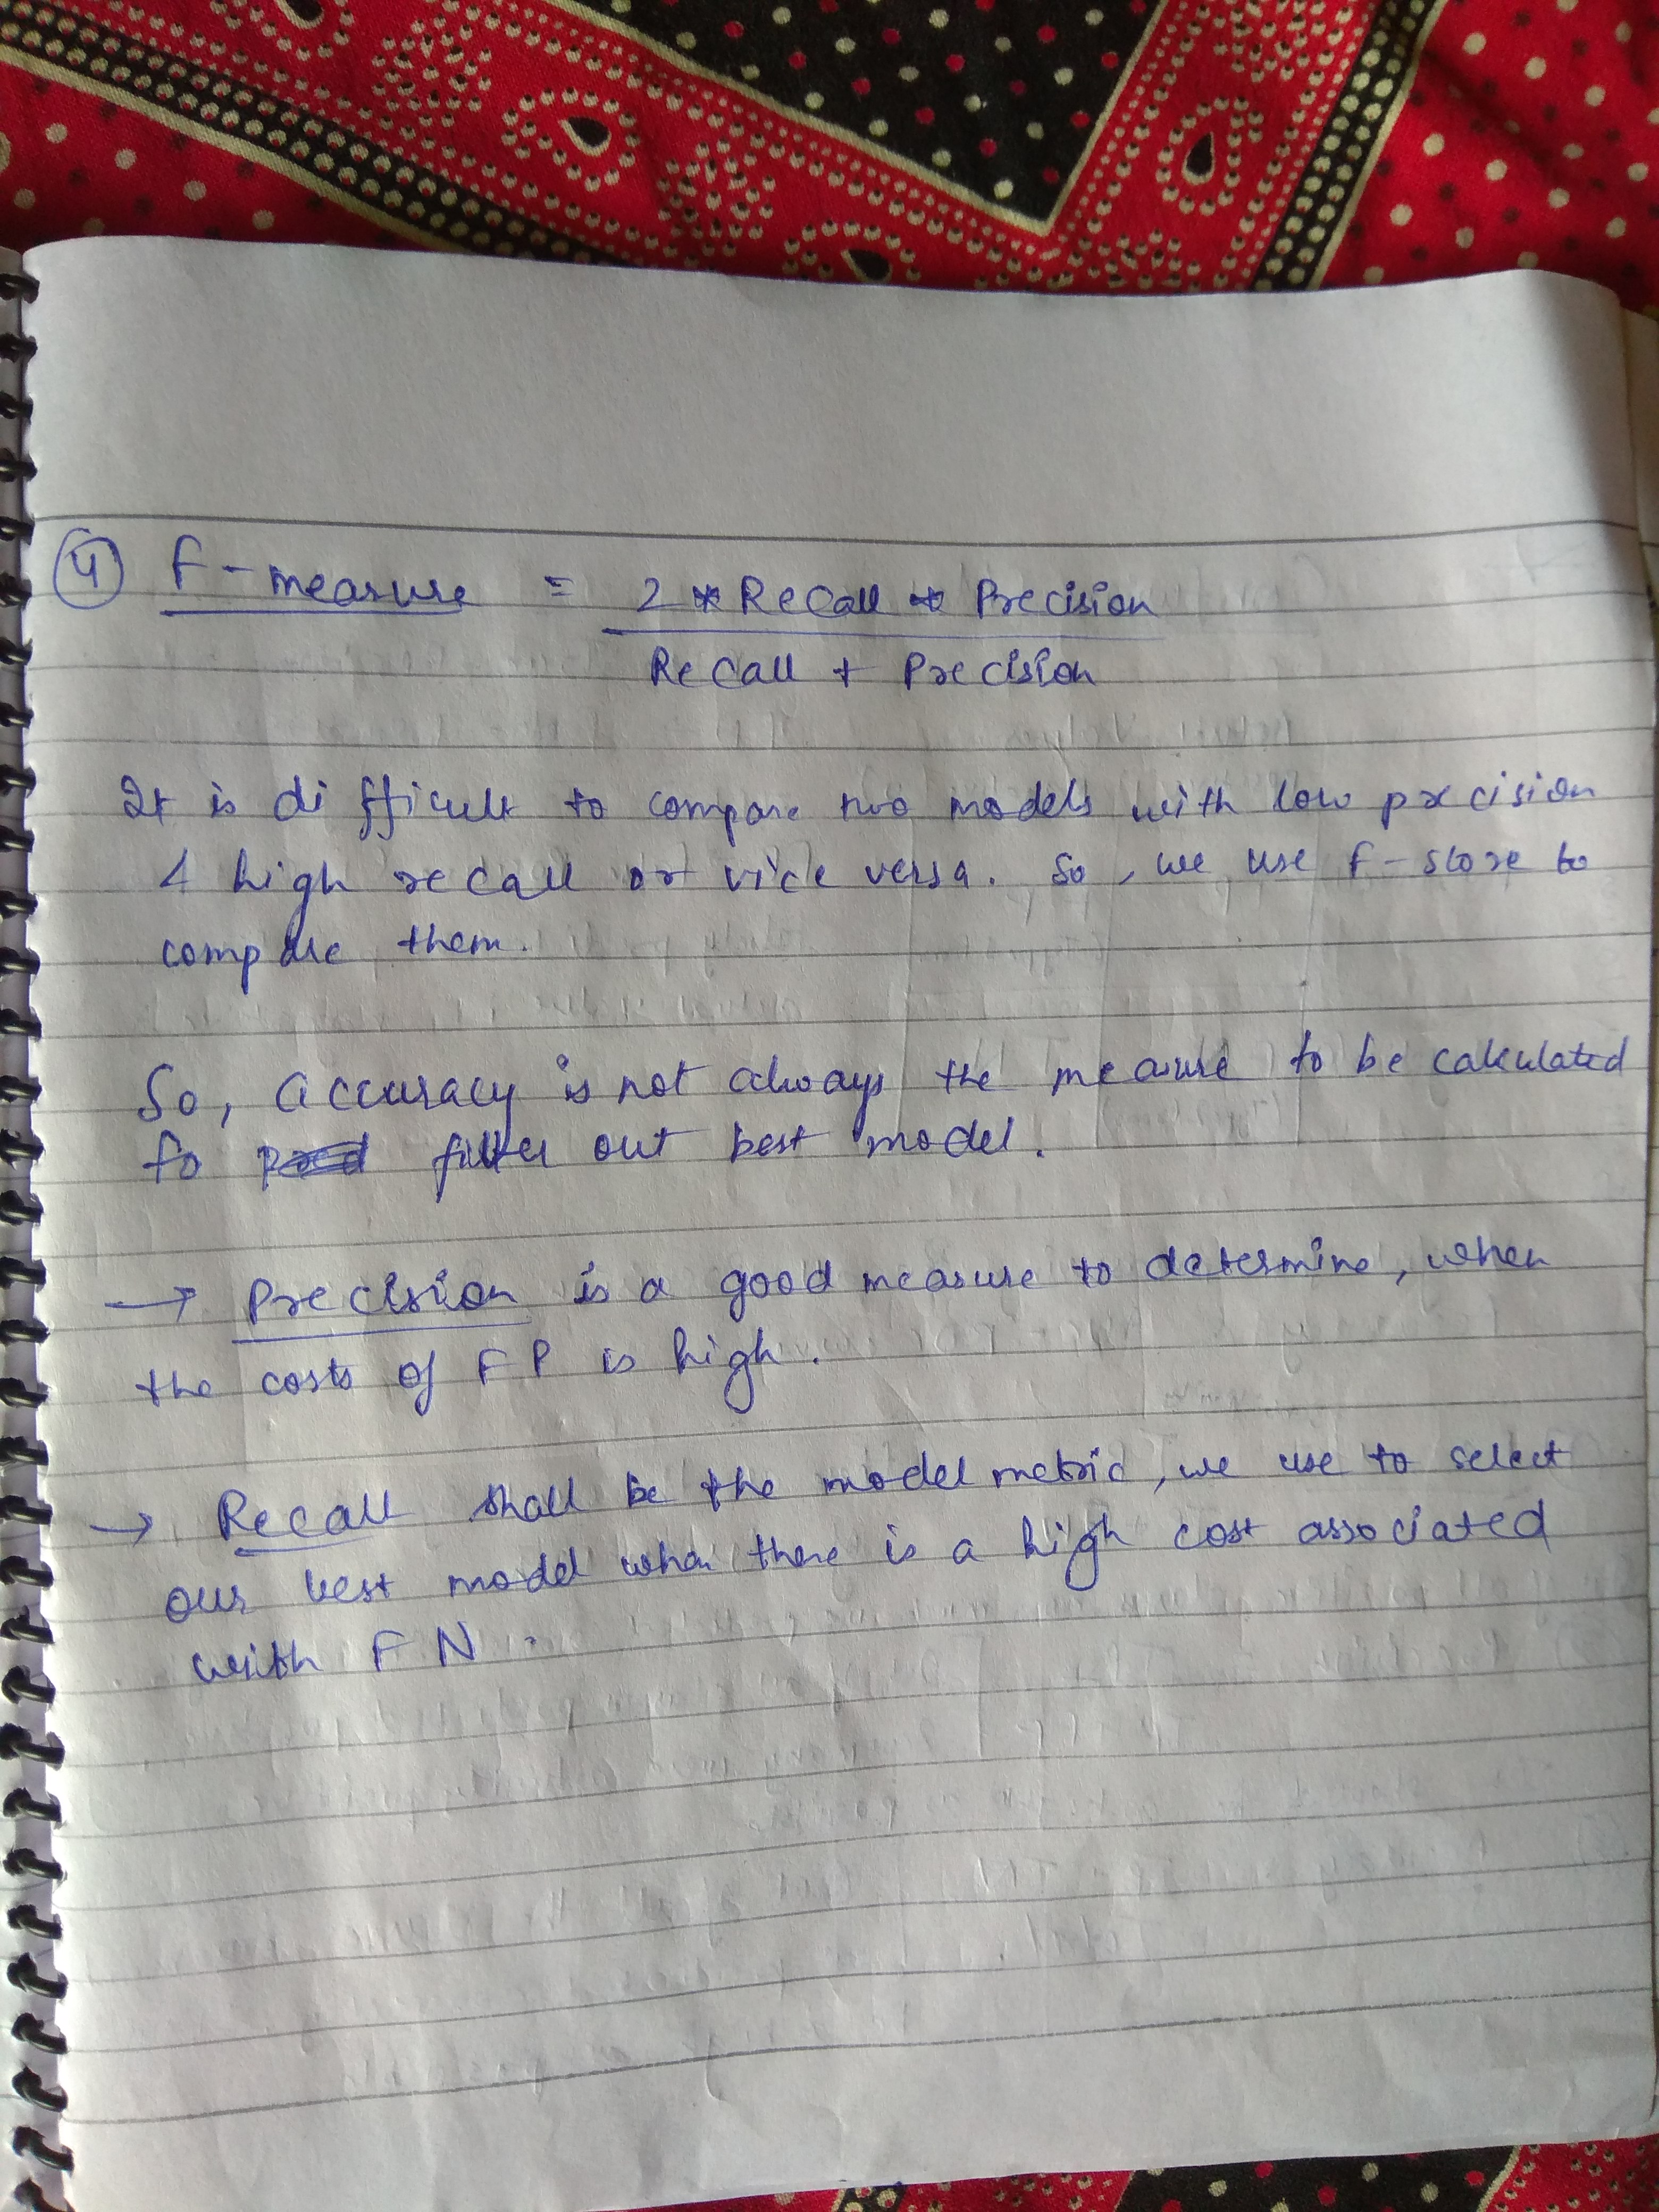 4 F-measure = 2 * Recall * Precision
Recall + Precision
It is difficult to compare two models with low precision
& high recall or vice versa. So, we use F-score to
compare them.
So, Accuracy is not always the measure to be calculated
to filter out best model.
→ Precision is a good measure to determine, when
the costs of FP is high.
→ Recall shall be the model metric, we use to select
our best model when there is a high cost associated
with FN.